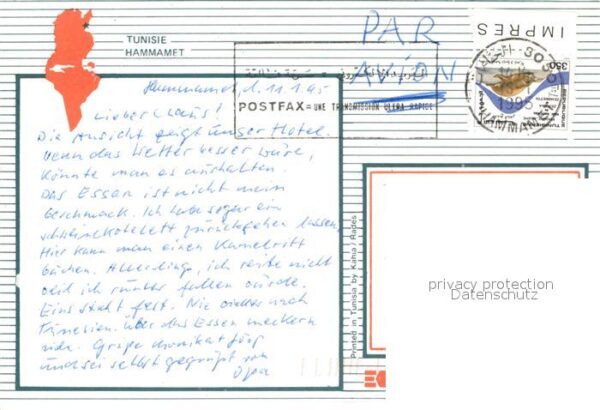 TUNISIE -
HAMMAMET
PAR
AVION
IMPRES
350
1995
HAMMAMET
POSTFAX = UNE TRANSMISSION ULTRA RAPIDE
Hammamet, d. 11.1.95
Lieber Klaus!
Die Ansicht zeigt unser Hotel.
Wenn das Wetter besser wäre,
könnte man es aushalten.
Das Essen ist nicht mein
Geschmack. Ich habe sogar ein
Schweinekotelett zurückgehen lassen.
Hier kann man einen Kamelritt
buchen. Allerdings, ich reite nicht
weil ich runter fallen würde.
Eins steht fest. Nie wieder nach
Tunesien. Über das Essen meckern
viele. Grüße
und sei selbst gegrüßt von
Opa
Printed in Tunisia by Kahia / Rades
privacy protection
Datenschutz